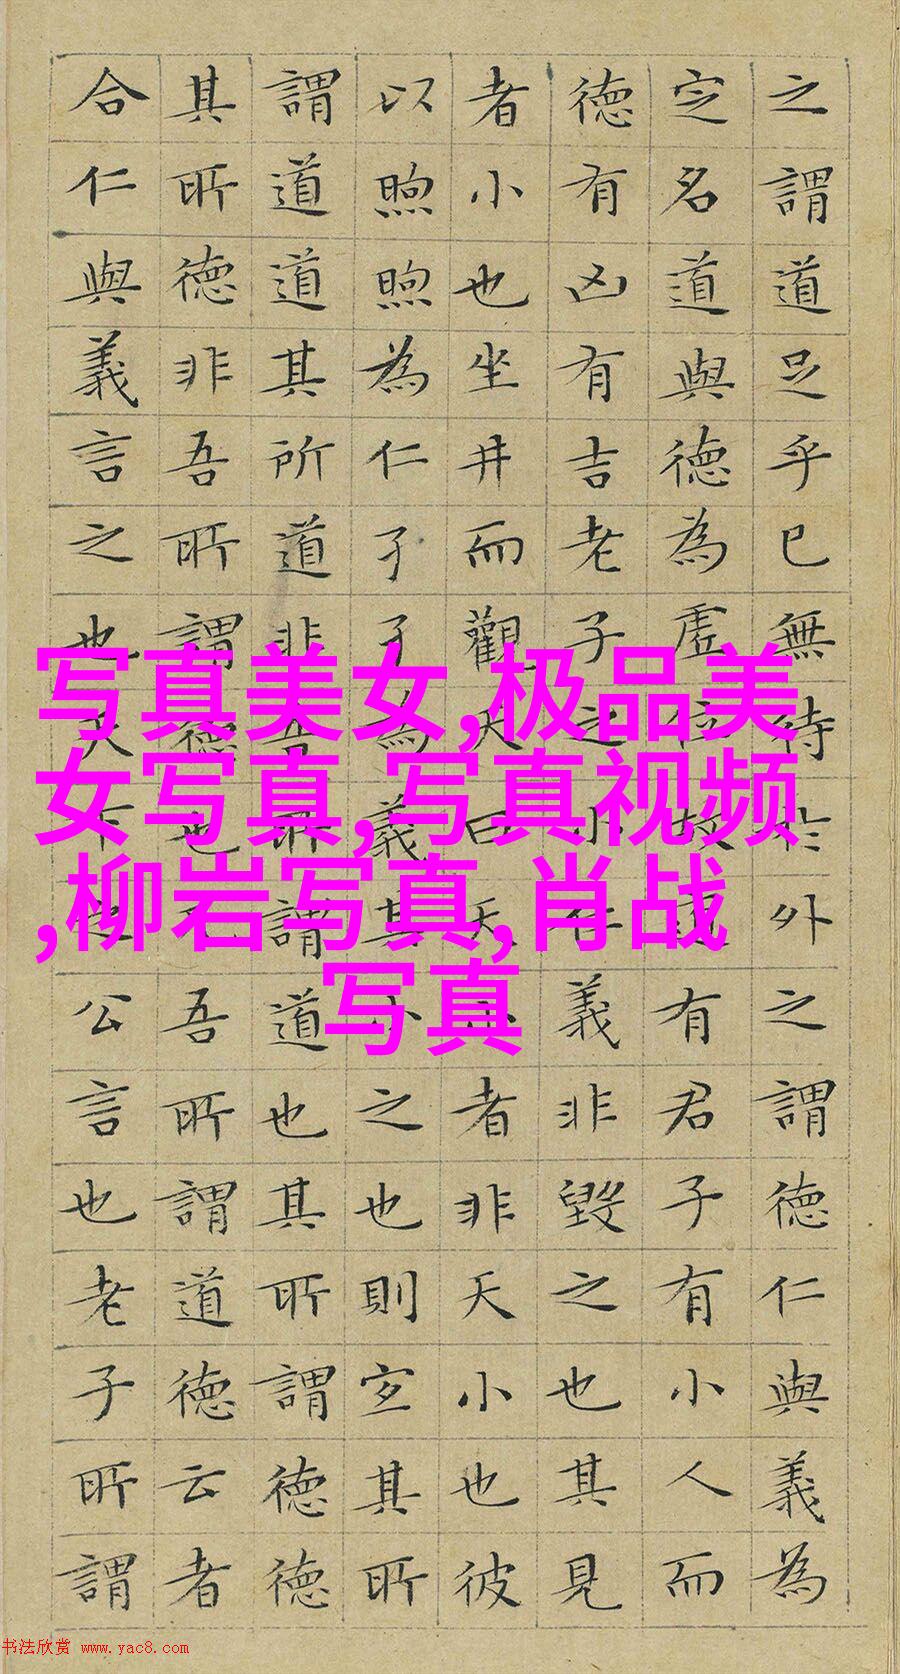 之謂道足乎已無待於外之謂德仁與義為
定名道與德為虛位故道有君子有小人而
德有凶有吉老子之小仁義非毀之也其見
者小也坐井而觀天曰天小者非天小也彼
以煦煦為仁孑孑為義其小之也則宜其所
謂道道其所道非吾所謂道也其所謂德德
其所德非吾所謂德也吾所謂道德云者
合仁與義言之也天下之公言也老子所謂
写真美女,极品美
女写真,写真视频
,柳岩写真,肖战
写真
书法欣赏 www.yac8.com